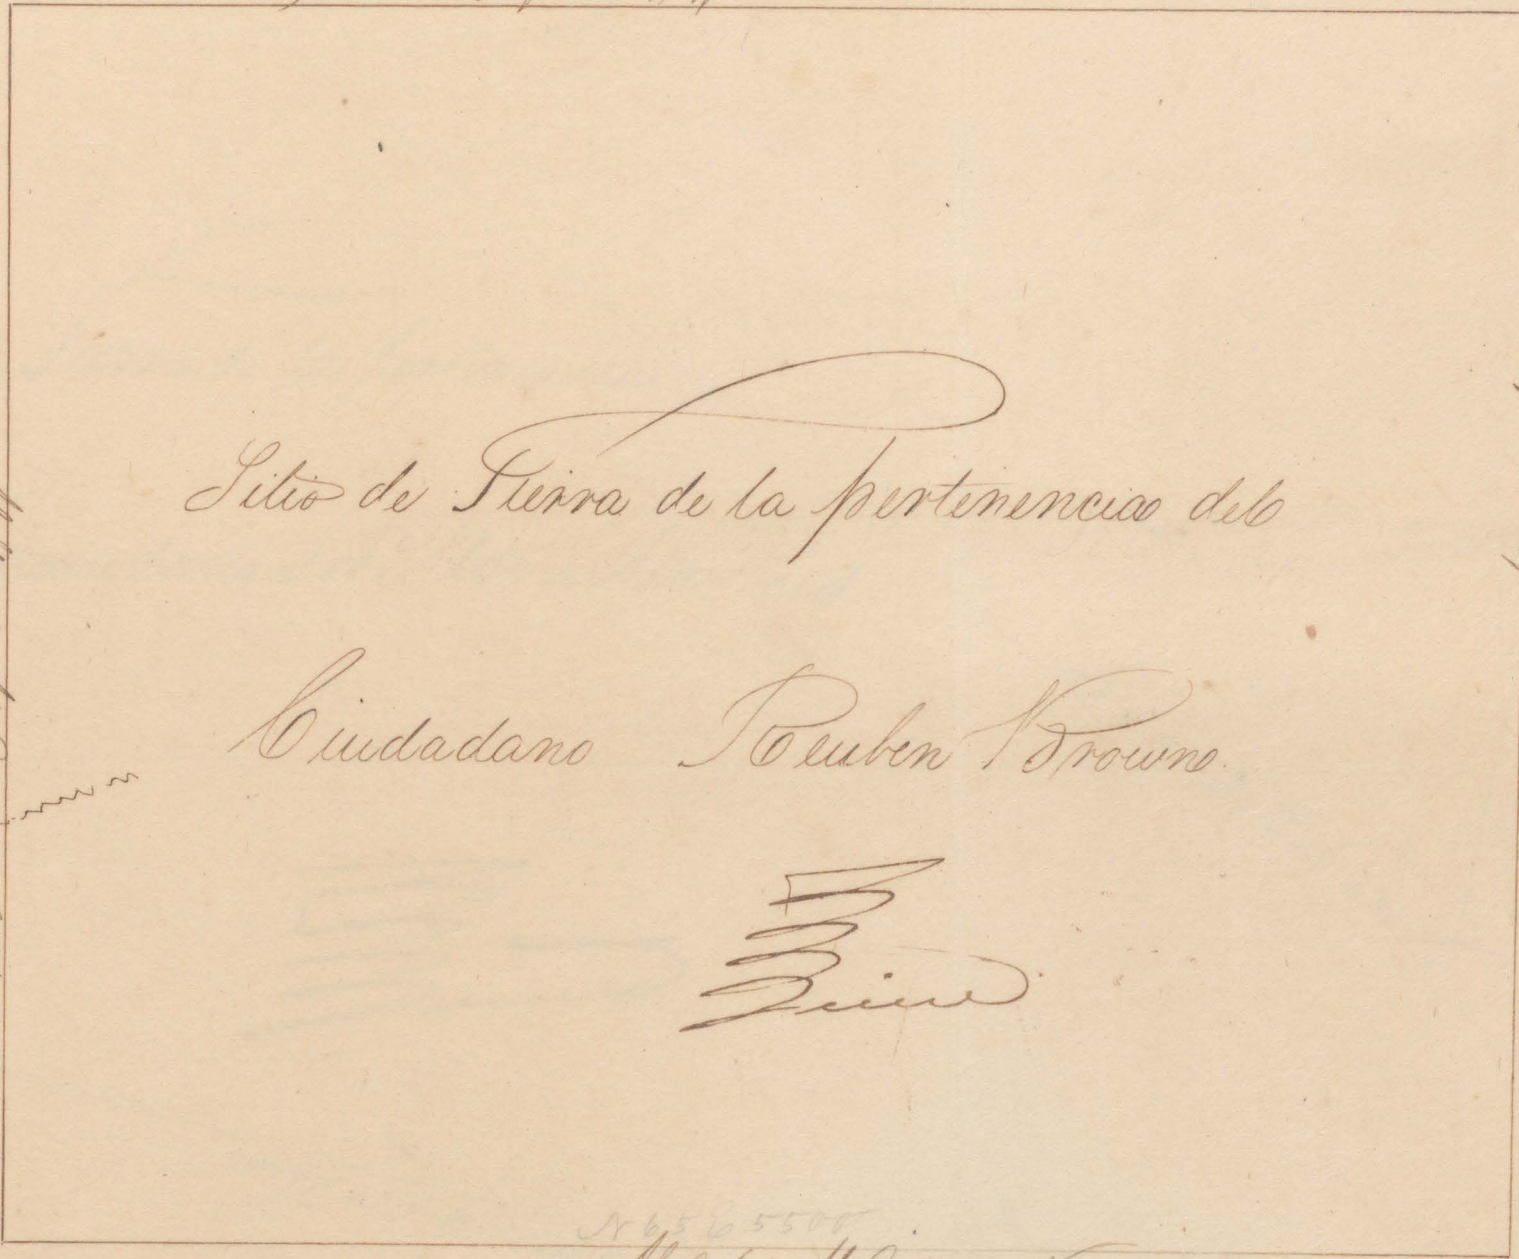 Sitio de Tierra de la pertenencia del
Ciudadano Reuben Brown.